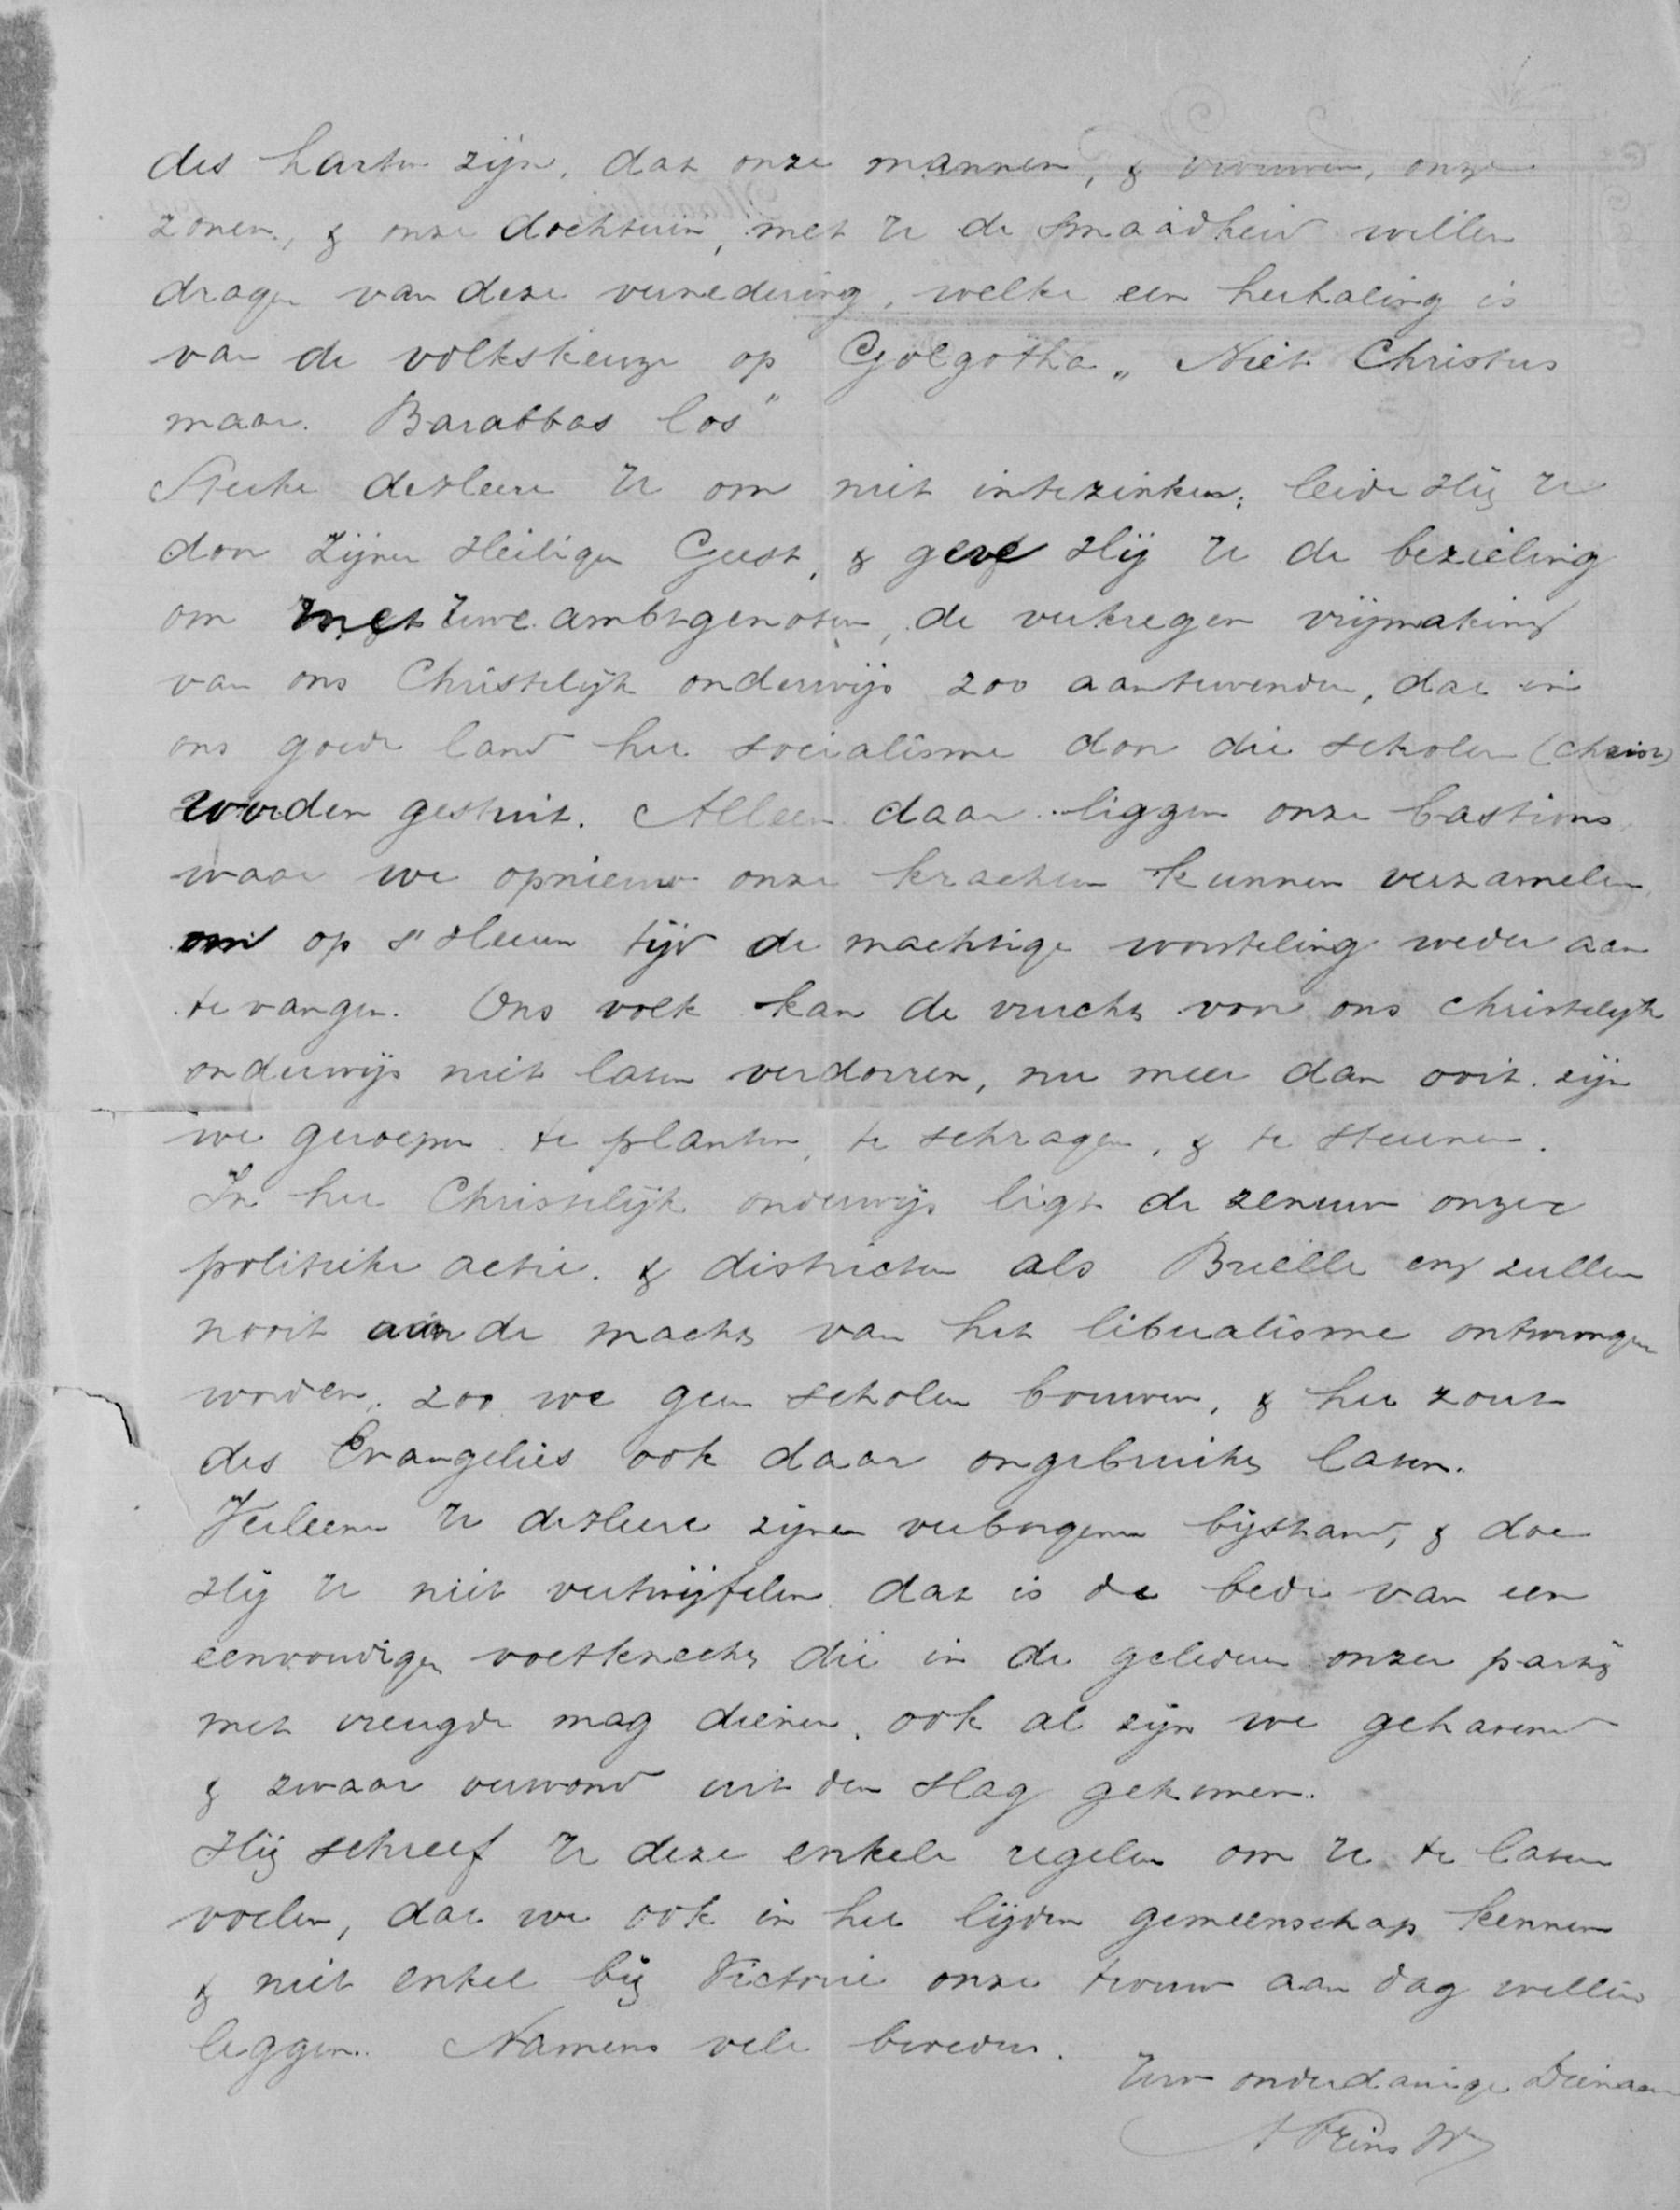 des harten zijn, dat onze mannen, & vrouwen, onze
zonen, & onze dochteren, met U de smaadheid willen
dragen van deze vernedering, welke een herhaling is
van de volkskeuze op Golgotha „ Niet Christus
maar Barabbas los"
Sterke de Heere U om niet intezinken; leide Hij U
door Zijnen Heiligen Geest, & geve Hij U de bezieling
om met Uwe ambtgenoten, de verkregen vrijmaking
van ons Christelijk onderwijs zoo aantewenden, dat in
ons goede land het socialisme door die scholen (christ)
worden gestuit. Alleen daar liggen onze bastions
waar we opnieuw onze krachten kunnen verzamelen
om op s' Heeren tijd de machtige worsteling weder aan
te vangen. Ons volk kan de vrucht van ons christelijk
onderwijs niet laten verdorren, nu meer dan ooit zijn
we geroepen te planten, te schragen, & te steunen.
In het Christelijk onderwijs ligt de zenuw onzer
politieke actie. & districten als Brielle enz zullen
nooit aan de macht van het liberalisme ontwrongen
worden, zoo we geen scholen bouwen, & het zout
des Evangelies ook daar ongebruikt laten.
Verleene U de Heere zijnen verborgenen bijstand, & doe
Hij U niet vertwijfelen dat is de bede van een
eenvoudigen voetknecht die in de gelederen onzer partij
met vreugde mag dienen, ook al zijn we gehavend
& zwaar verwond uit den slag gekomen.
Hij schreef U deze enkele regelen om U te laten
voelen, dat we ook in het lijden gemeenschap kennen
& niet enkel bij Victorie onze trouw aan dag willen
leggen. Namens vele broeders.
Uw onderdanige Dienaar
A Prins